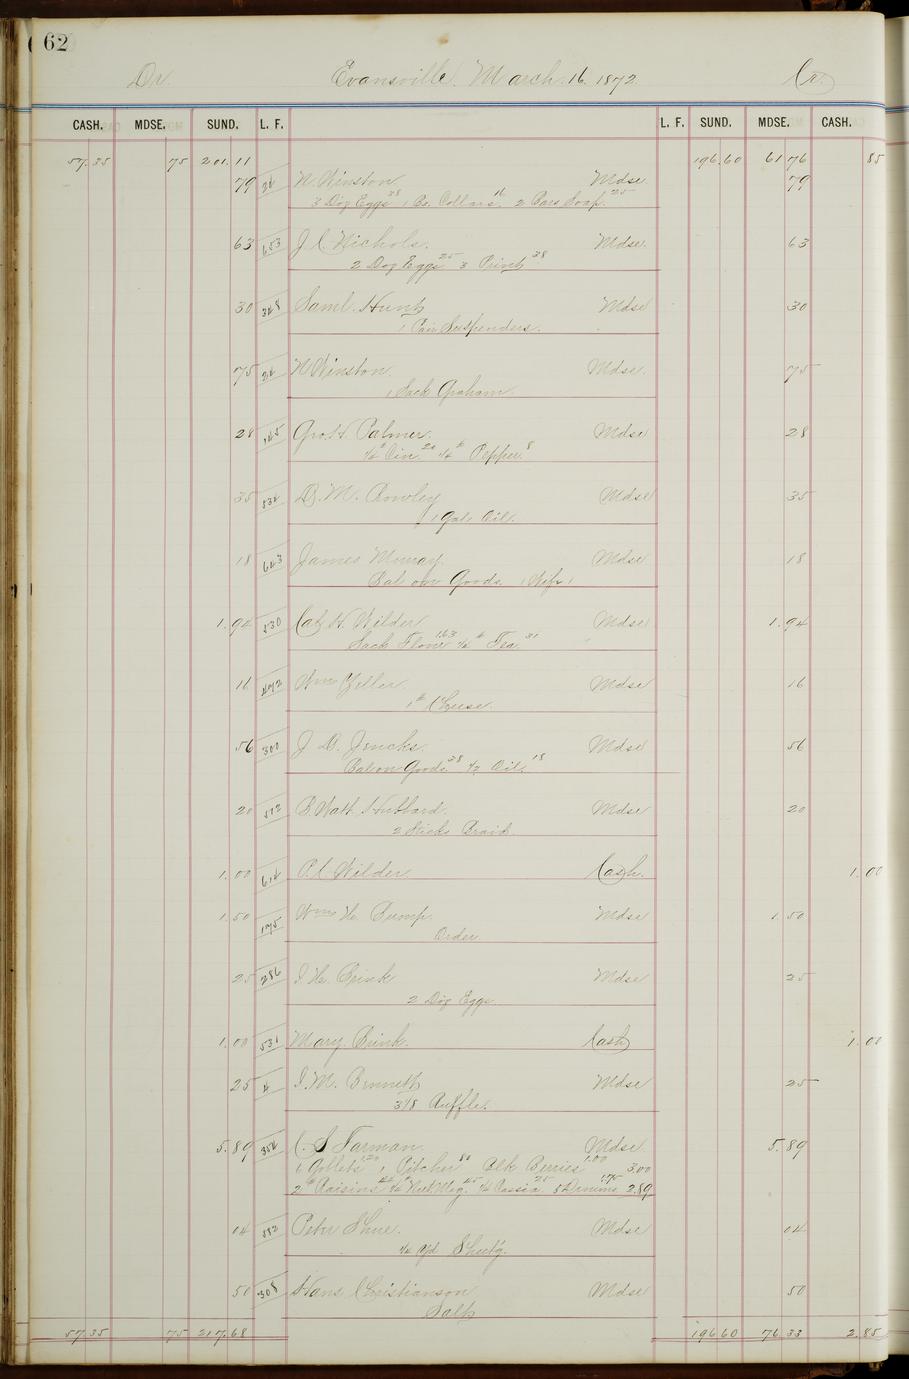 62
Dr. Evansville. March. 16. 1872. Cr.
CASH. MDSE. SUND. L. F. L. F. SUND. MDSE. CASH.
57.35 75 201.11 196.60 61 76 85
79 24 W. Winston Mdse. 79
3 Doz Eggs 38 1 Bx. Collars. 16 2 Bars Soap. 25
63 653 J. C. Nichols. Mdse. 63
2 Doz Eggs 25 3 Print 38
30 348 Saml. Hunt Mdse 30
1 Pair Suspenders.
75 24 W Winston Mdse. 75
1 Sack Graham.
28 145 Geo. H. Palmer. Mdse 28
¼ Cin. 20 ¼ Pepper. 8
35 534 D. M. Rowley Mdse 35
1 Gal. Oil.
18 643 James Murray Mdse 18
Bal on Goods. (Wife)
1.94 530 Cal. H. Wilder Mdse 1.94
Sack Flour 1.63 ½ Tea. 31
16 472 Wm Yeller. Mdse 16
1 # Cheese.
56 300 J. D. Jencks. Mdse 56
Bal on Goods. 38 ½ Oil. 18
20 512 B. Watt. Hubbard. Mdse 20
2 Sticks Braid
1.00 614 P. C. Wilder Cash. 1.00
1.50 175 Wm H. Bump. Mdse 1.50
Order.
25 286 I. H. Brink Mdse 25
2 Doz Eggs
1.00 531 Mary. Brink. Cash 1.00
25 4 I. M. Bennett Mdse 25
3⅛ Ruffle.
5.89 354 C. S Farman. Mdse 5.89
6 Goblets 1.20 1 Pitcher 80 Blk Berries 1.00 3.00
2 # Raisins ¼ Nut. Meg. 25 ¼ Cassia. 25 5 Denims 1.75 2.89
04 552 Peter Shue. Mdse 04
¼ yd Sheet'g.
50 308 Hans Christianson Mdse 50
Salt
57.35 75 217.68 196 60 76.33 2.85